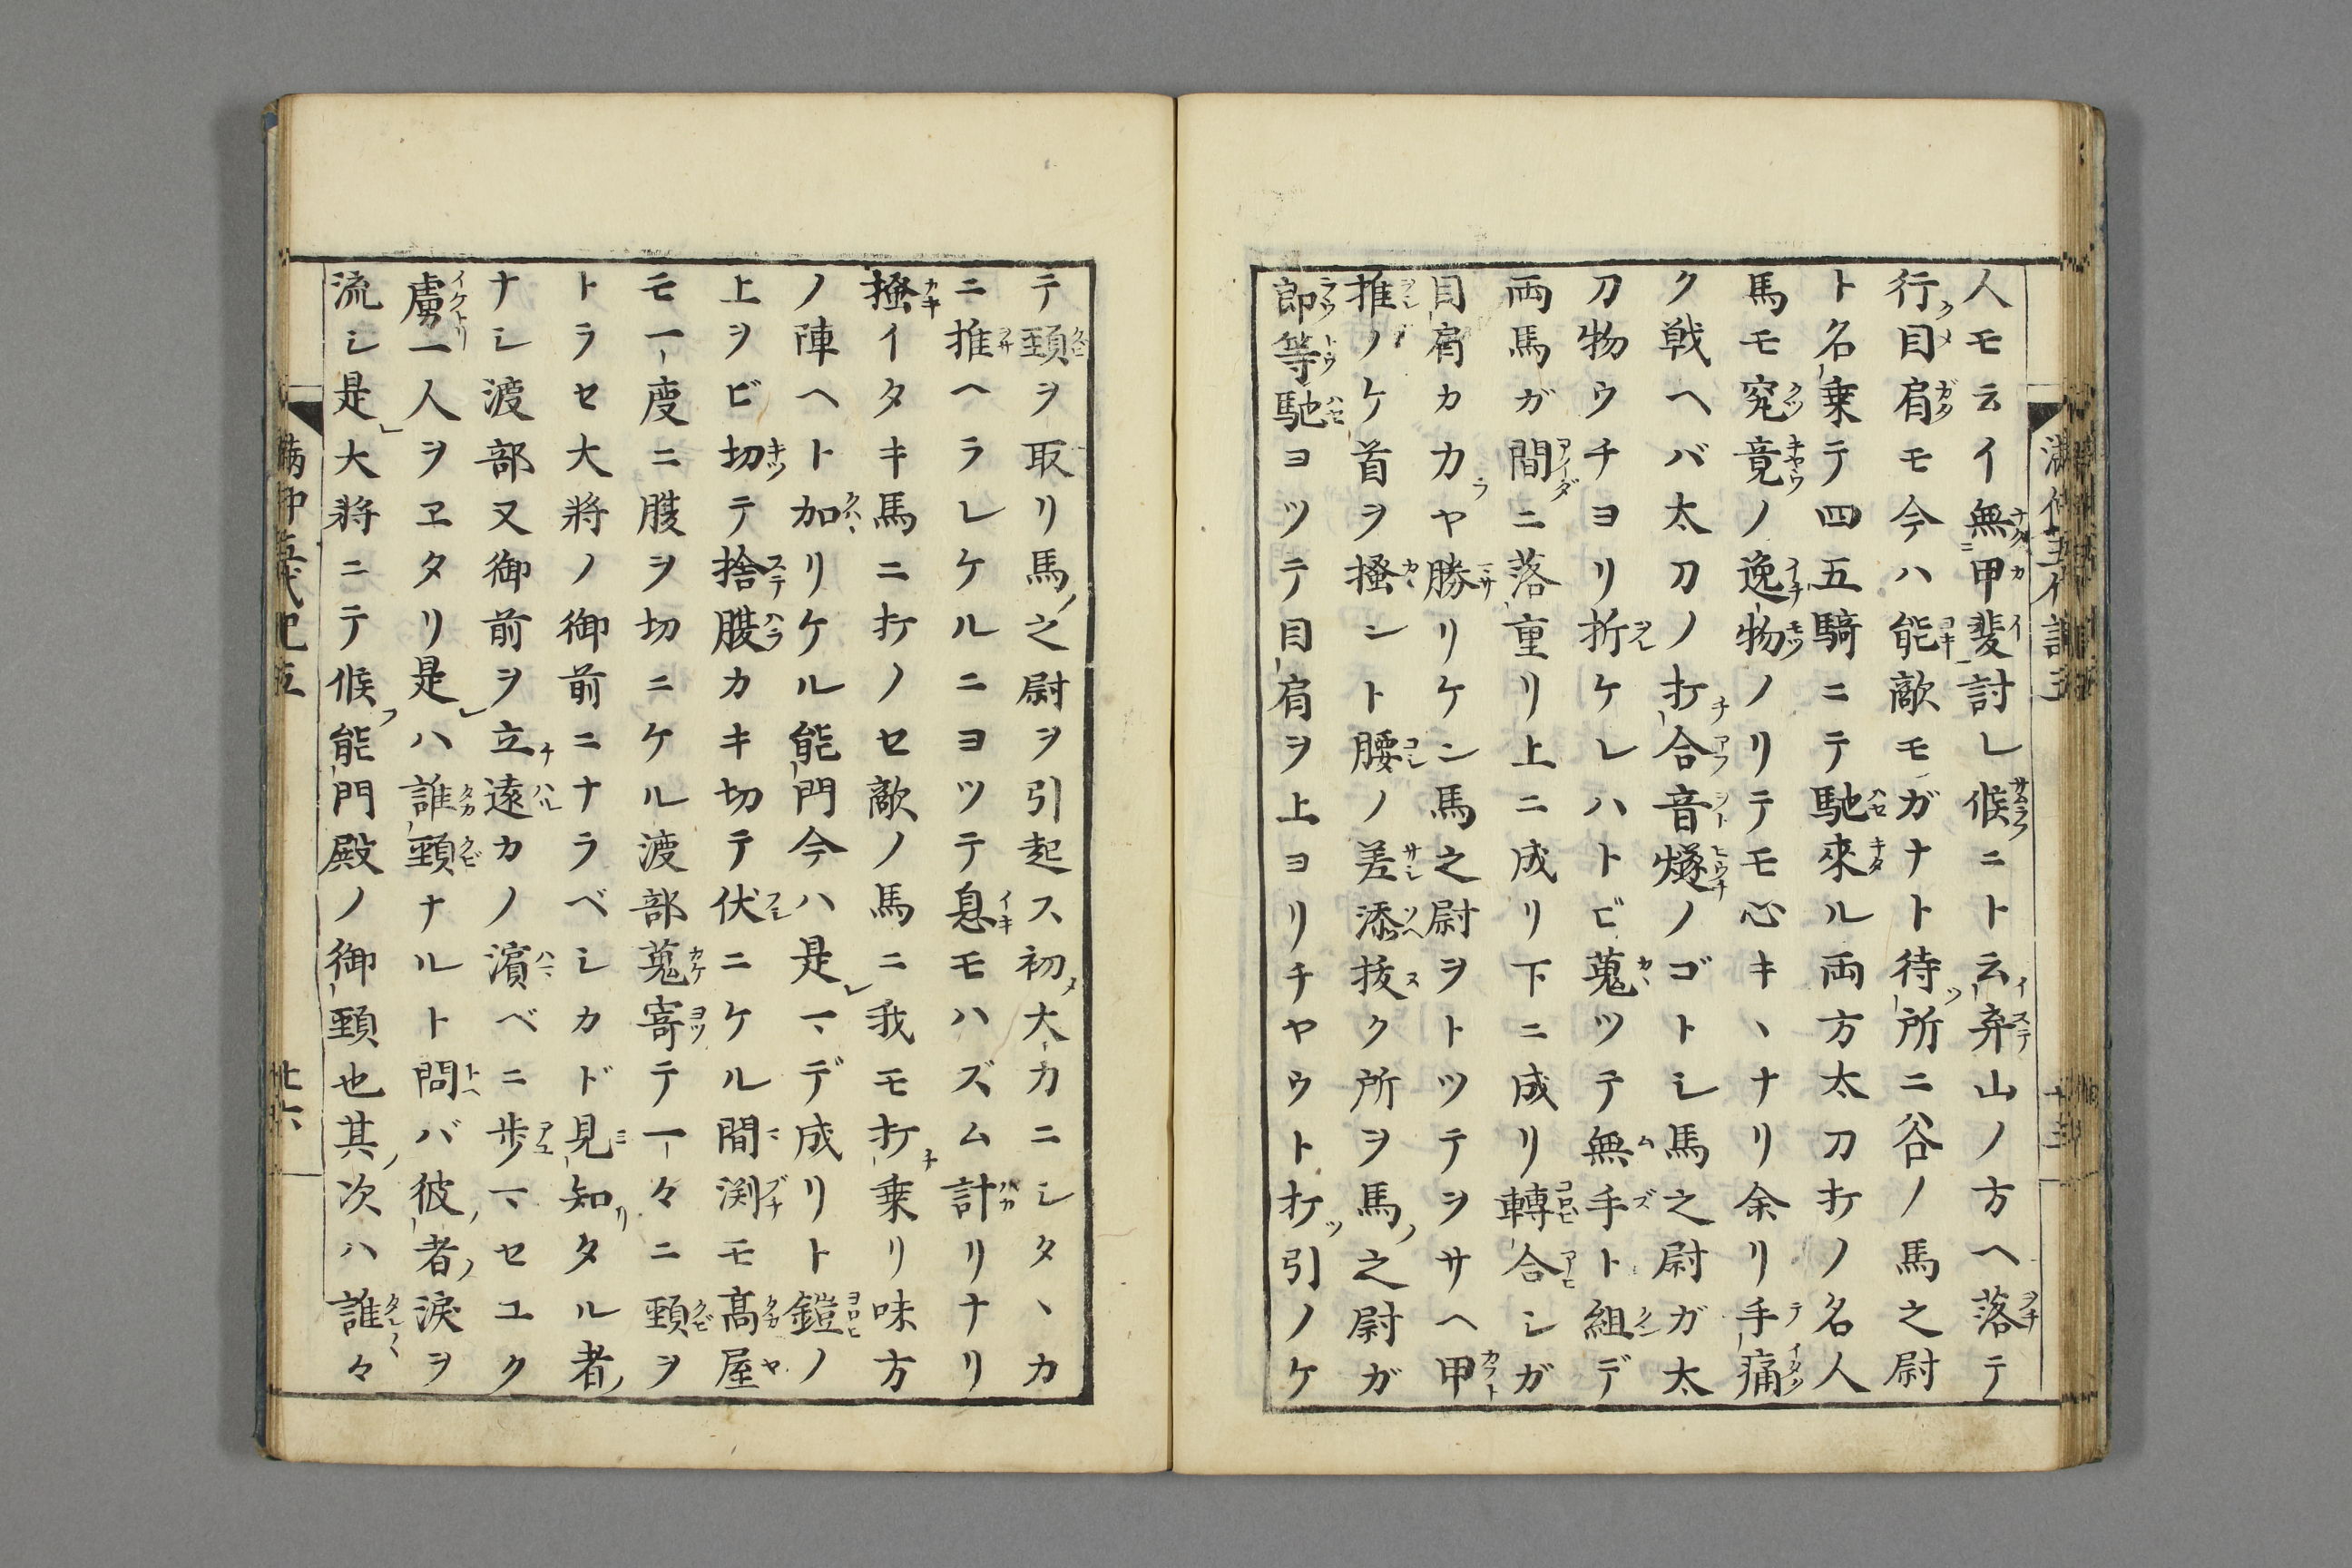 人モ云イ無甲斐討レ候ニト云弃山ノ方ヘ落テ
行目肩モ今ハ能敵モガナト待所ニ谷ノ馬之尉
ト名乗テ四五騎ニテ馳來ル両方太刀打ノ名人
馬モ究竟ノ逸物ノリテモ心キヽナリ余リ手痛
ク戦ヘバ太刀ノ打合音燧ノゴトシ馬之尉ガ太
刀物ウチヨリ折ケレハトビ蒐ツテ無手ト組デ
両馬ガ間ニ落重リ上ニ成リ下ニ成リ轉合シガ
目肩カカヤ勝リケン馬之尉ヲトツテヲサヘ甲
推ノケ首ヲ掻ントト腰ノ差添抜ク所ヲ馬之尉ガ
郎等馳ヨツテ目肩ヲ上ヨリチヤウト打引ノケ
テ頸ヲ取リ馬之尉ヲ引起ス初大カニシタヽカ
ニ推ヘラレケルニヨツテ息モハズム計リナリ
掻イタキ馬ニ打ノセ敵ノ馬ニ我モ打乗リ味方
ノ陣ヘト加リケル能門今ハ是マデ成リト鎧ノ
上ヲビ切テ捨腹カキ切テ伏ニケル間渕モ高屋
モ一度ニ腹ヲ切ニケル渡部蒐寄テ一々ニ頸ヲ
トラセ大將ノ御前ニナラベシカド見知タル者
ナシ渡部又御前ヲ立遠カノ濵ベニ歩マセユク
虜一人ヲヱタリ是ハ誰頸ナルト問バ彼者涙ヲ
流シ是大將ニテ候能門殿ノ御頸也其次ハ誰々